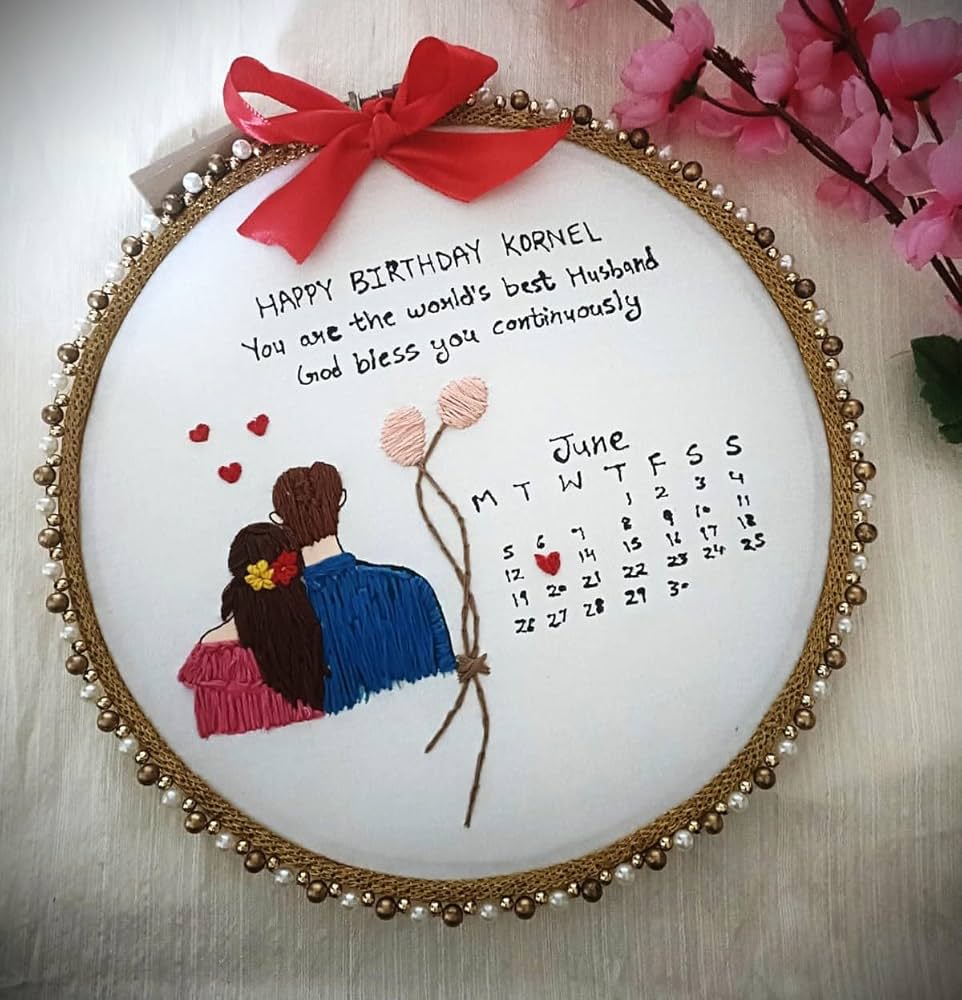 HAPPY BIRTHDAY KORNEL
You are the world's best Husband
God bless you continuously
June
M T W T F S S
1 2 3 4
5 6 7 8 9 10 11
12 14 15 16 17 18
19 20 21 22 23 24 25
26 27 28 29 30